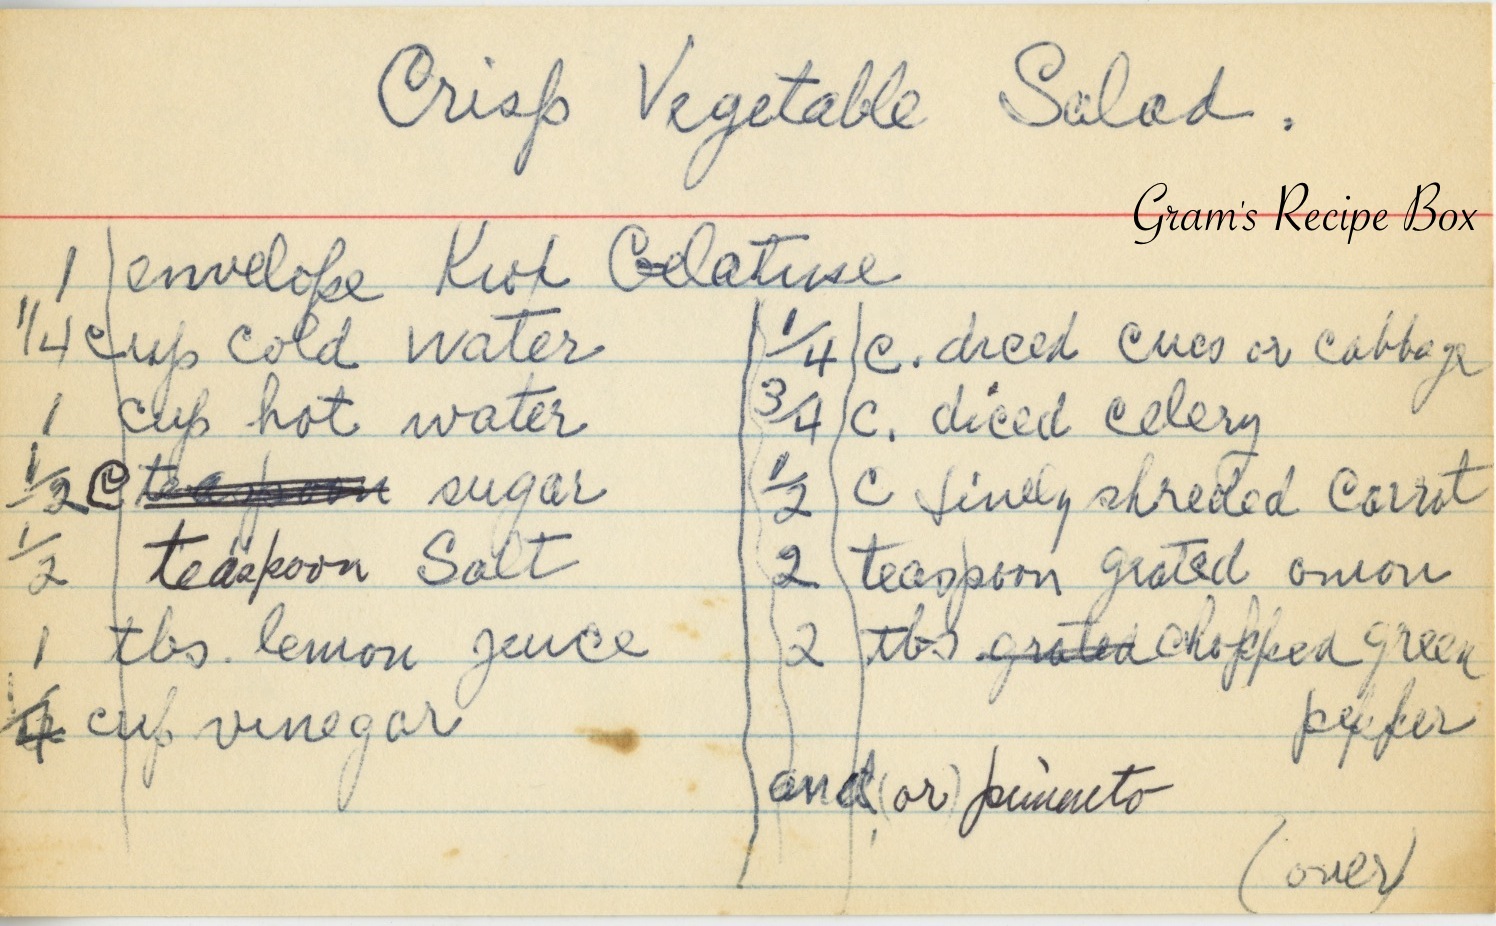 Crisp Vegetable Salad.
Gram's Recipe Box
1 envelope Knox Gelatine
1/4 cup cold water
1 cup hot water
1/2 C teaspoon sugar
1/2 teaspoon Salt
1 tbs. lemon juice
1/4 cup vinegar
1/4 c. diced cucs or cabbage
3/4 c. diced celery
1/2 c finely shreded Carrot
2 teaspoon grated onion
2 tbs. grated chopped green
pepper
and (or) pimento
(over)